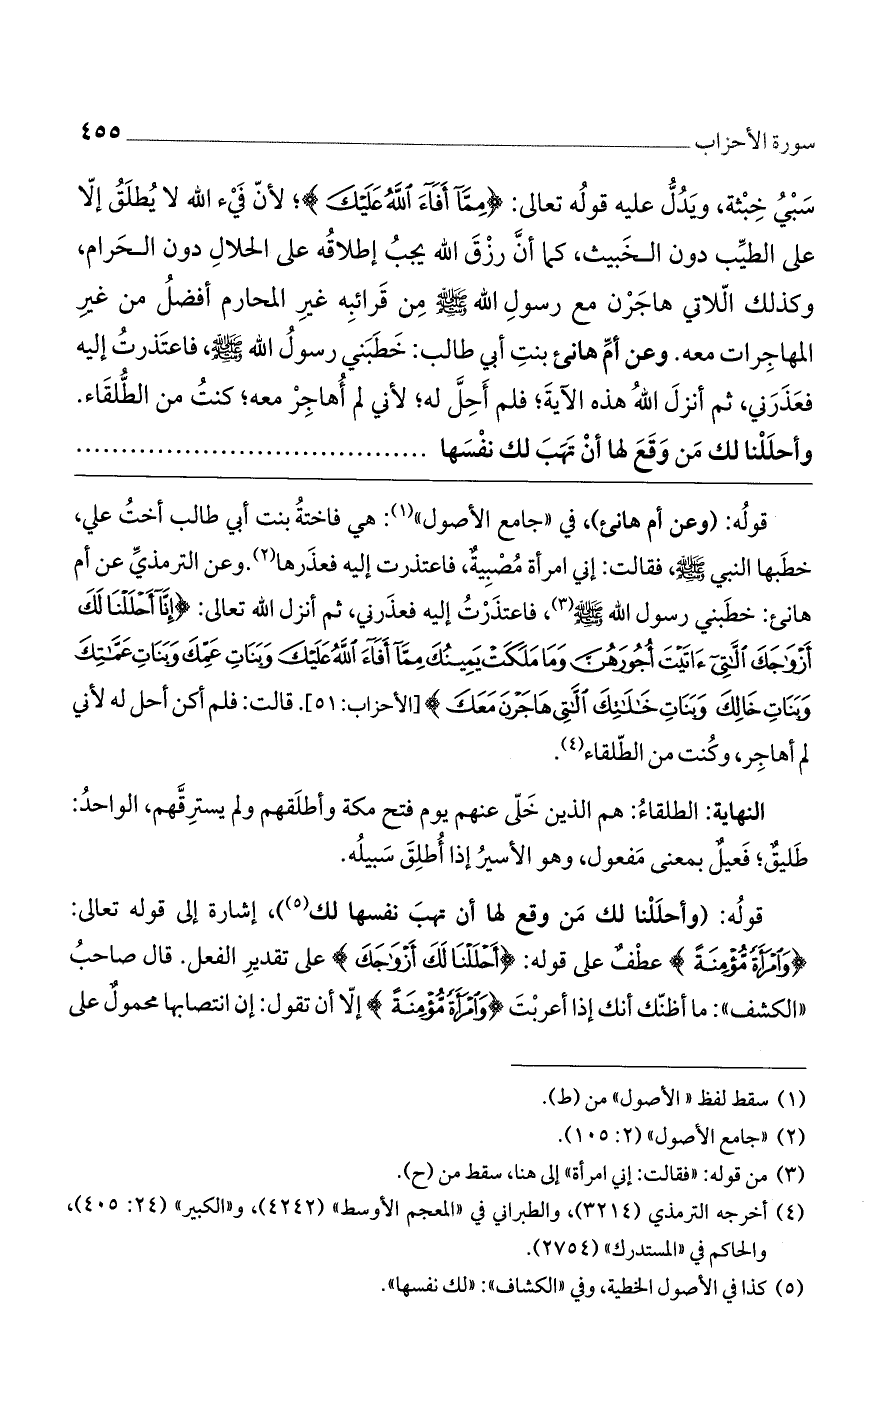 سورة الأحزاب ٤٥٥
سَبْيُ خِبْثة، ويَدُلُّ عليه قولُه تعالى: ﴿مِمَّآ أَفَآءَ ٱللَّهُ عَلَيْكَ﴾؛ لأنّ فَيْء الله لا يُطلَقُ إلّا
على الطيِّب دون الـخَبيث، كما أنَّ رزْقَ الله يجبُ إطلاقُه على الحلالِ دون الـحَرام،
وكذلك الّلاتي هاجَرْن مع رسولِ الله ﷺ مِن قَرائبِه غيرِ المحارم أفضلُ من غيرِ
المهاجِرات معه. وعن أمِّ هانئ بنتِ أبي طالب: خَطَبَني رسولُ الله ﷺ، فاعتَذرتُ إليه
فعَذَرَني، ثم أنزلَ اللهُ هذه الآيةَ؛ فلم أَحِلَّ له؛ لأني لم أُهاجِرْ معه؛ كنتُ من الطُّلقَاء.
وأحلَلْنا لك مَن وَقَعَ لها أنْ تَهَبَ لك نفْسَها ......................................
قولُه: (وعن أم هانئ)، في «جامع الأصول»(١): هي فاختةُ بنت أبي طالب أختُ علي،
خطَبها النبي ﷺ، فقالت: إني امرأة مُصْبِيةٌ، فاعتذرت إليه فعذَرها(٢).وعن الترمذيِّ عن أم
هانئ: خطبني رسول الله ﷺ(٣)، فاعتَذَرْتُ إليه فعذرني، ثم أنزل الله تعالى: ﴿إِنَّآ أَحْلَلْنَا لَكَ
أَزْوَٰجَكَ ٱلَّٰتِىٓ ءَاتَيْتَ أُجُورَهُنَّ وَمَا مَلَكَتْ يَمِينُكَ مِمَّآ أَفَآءَ ٱللَّهُ عَلَيْكَ وَبَنَاتِ عَمِّكَ وَبَنَاتِ عَمَّٰتِكَ
وَبَنَاتِ خَالِكَ وَبَنَاتِ خَٰلَٰتِكَ ٱلَّٰتِى هَاجَرْنَ مَعَكَ﴾ [الأحزاب: ٥١]. قالت: فلم أكن أحل له لأني
لم أهاجِر، وكُنت من الطّلقاء(٤).
النهاية: الطلقاءُ: هم الذين خَلّى عنهم يوم فتح مكة وأطلَقهم ولم يسترِقَّهم، الواحدُ:
طَليقٌ؛ فَعيلٌ بمعنى مَفعول، وهو الأسيرُ إذا أُطلِقَ سَبيلُه.
قولُه: (وأحلَلْنا لك مَن وقع لها أن تهبَ نفسها لك(٥))، إشارة إلى قوله تعالى:
﴿وَٱمْرَأَةً مُّؤْمِنَةً﴾ عطفٌ على قوله: ﴿أَحْلَلْنَا لَكَ أَزْوَٰجَكَ﴾ على تقديرِ الفعل. قال صاحبُ
«الكشف»: ما أظنّك أنك إذا أعربْتَ ﴿وَٱمْرَأَةً مُّؤْمِنَةً﴾ إلّا أن تقول: إن انتصابها محمولٌ على
(١) سقط لفظ «الأصول» من (ط).
(٢) «جامع الأصول» (٢: ١٠٥).
(٣) من قوله: «فقالت: إني امرأة» إلى هنا، سقط من (ح).
(٤) أخرجه الترمذي (٣٢١٤)، والطبراني في «المعجم الأوسط» (٤٢٤٢)، و«الكبير» (٢٤: ٤٠٥)،
والحاكم في «المستدرك» (٢٧٥٤).
(٥) كذا في الأصول الخطية، وفي «الكشاف»: «لك نفسها».